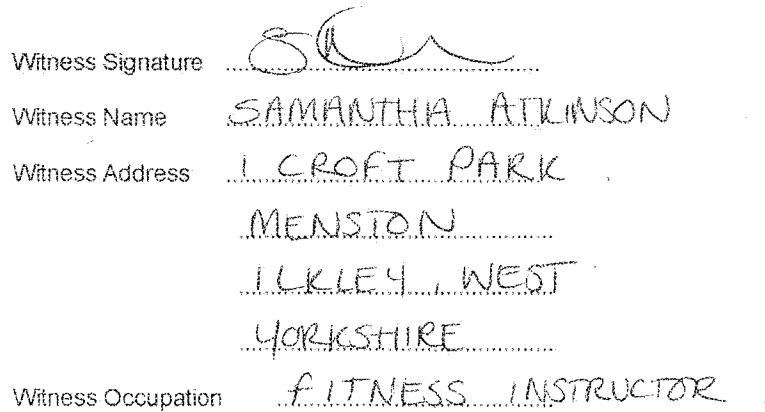 Witness Signature
Witness Name SAMANTHA ATKINSON
Witness Address 1 CROFT PARK
MENSTON
ILKLEY, WEST
YORKSHIRE
Witness Occupation FITNESS INSTRUCTOR